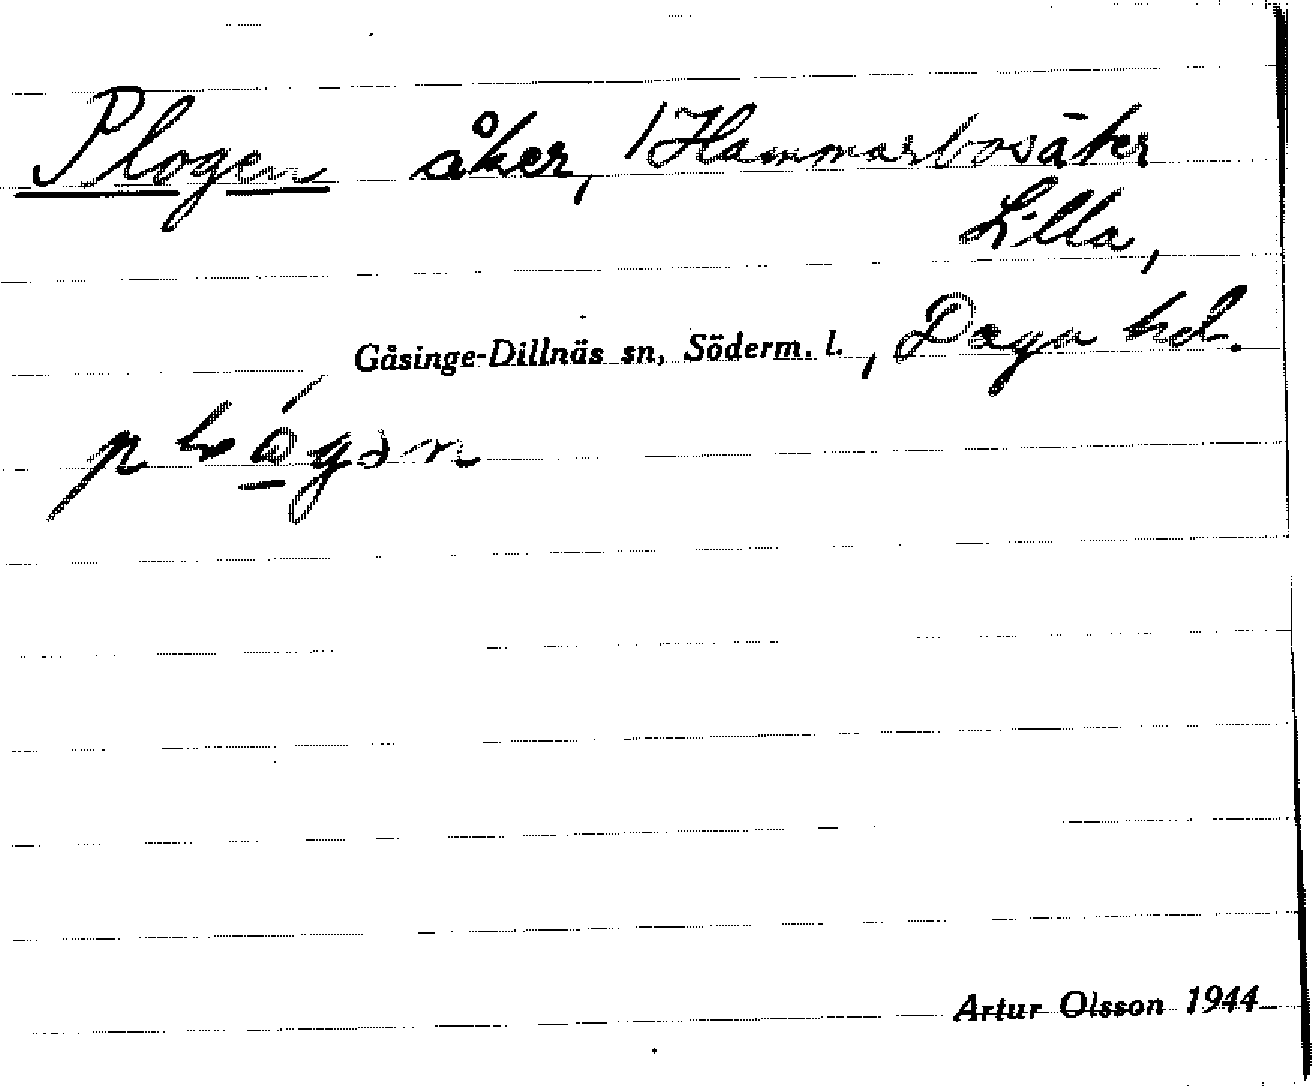 Plogen åker, /Hammarbosäter
Lilla,
Gåsinge-Dillnäs sn, Söderm. l., Daga hd.
Artur Olsson 1944